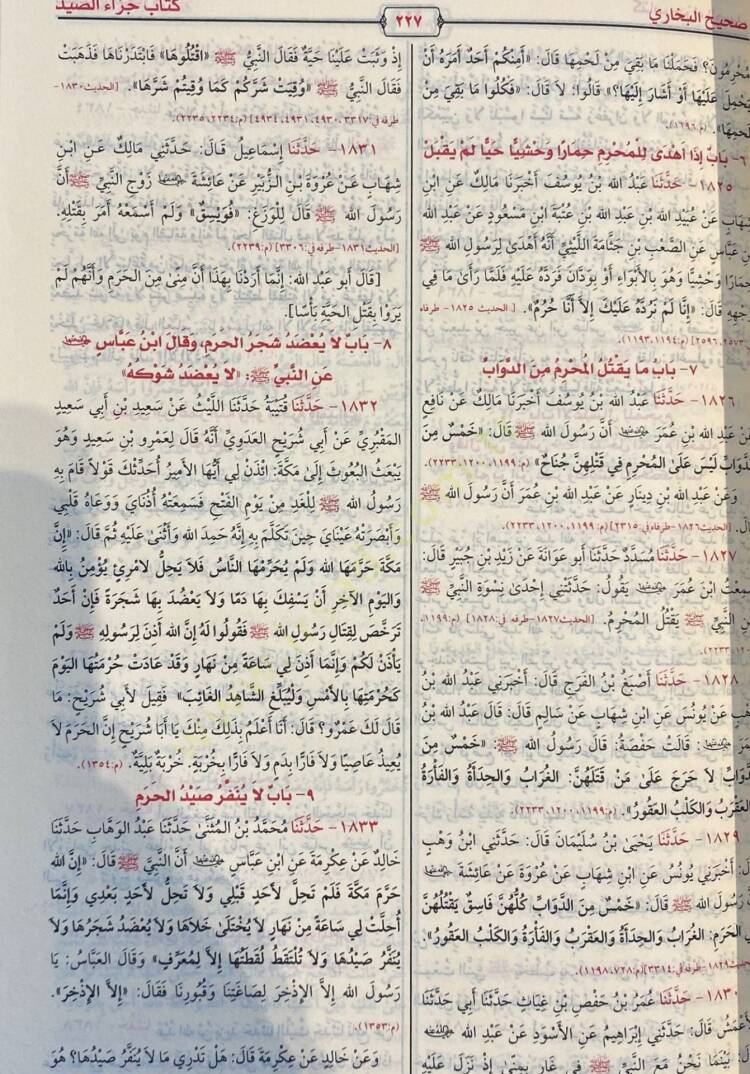 صحيح البخاري
٢٢٧
كتاب جزاء الصيد
مُحْرِمُونَ؟ فَحَمَلْنَا مَا بَقِيَ مِنْ لَحْمِهَا قَالَ: «أَمِنْكُمْ أَحَدٌ أَمَرَهُ أَنْ
يَحْمِلَ عَلَيْهَا أَوْ أَشَارَ إِلَيْهَا؟» قَالُوا: لاَ قَالَ: «فَكُلُوا مَا بَقِيَ مِنْ
لَحْمِهَا». (م:١١٩٦).
٦- بَابٌ إِذَا أَهْدَى لِلْمُحْرِمِ حِمَارًا وَحْشِيًّا حَيًّا لَمْ يَقْبَلْ
١٨٢٥- حَدَّثَنَا عَبْدُ الله بْنُ يُوسُفَ أَخْبَرَنَا مَالِكٌ عَنِ ابْنِ
شِهَابٍ عَنْ عُبَيْدِ الله بْنِ عَبْدِ الله بْنِ عُتْبَةَ ابْنِ مَسْعُودٍ عَنْ عَبْدِ الله
بْنِ عَبَّاسٍ عَنِ الصَّعْبِ بْنِ جَثَّامَةَ اللَّيْثِيِّ أَنَّهُ أَهْدَى لِرَسُولِ الله ﷺ
حِمَارًا وَحْشِيًّا وَهُوَ بِالأَبْوَاءِ أَوْ بِوَدَّانَ فَرَدَّهُ عَلَيْهِ فَلَمَّا رَأَى مَا فِي
وَجْهِهِ قَالَ: «إِنَّا لَمْ نَرُدَّهُ عَلَيْكَ إِلاَّ أَنَّا حُرُمٌ». [الحديث ١٨٢٥- طرفاه
٢٥٧٣، ٢٥٩٦]. (م:١١٩٣، ١١٩٤).
٧- بَابُ مَا يَقْتُلُ الْمُحْرِمُ مِنَ الدَّوَابِّ
١٨٢٦- حَدَّثَنَا عَبْدُ الله بْنُ يُوسُفَ أَخْبَرَنَا مَالِكٌ عَنْ نَافِعٍ
عَنْ عَبْدِ الله بْنِ عُمَرَ رضي الله عنهما أَنَّ رَسُولَ الله ﷺ قَالَ: «خَمْسٌ مِنَ
الدَّوَابِّ لَيْسَ عَلَى الْمُحْرِمِ فِي قَتْلِهِنَّ جُنَاحٌ» (م:١١٩٩، ١٢٠٠، ٢٢٣٣).
وَعَنْ عَبْدِ الله بْنِ دِينَارٍ عَنْ عَبْدِ الله بْنِ عُمَرَ أَنَّ رَسُولَ الله ﷺ
قَالَ. [الحديث ١٨٢٦- طرفاه في: ٣٣١٥] (م: ١١٩٩، ١٢٠٠، ٢٢٣٣).
١٨٢٧- حَدَّثَنَا مُسَدَّدٌ حَدَّثَنَا أَبو عَوَانَةَ عَنْ زَيْدِ بْنِ جُبَيْرٍ قَالَ:
سَمِعْتُ ابْنَ عُمَرَ رضي الله عنهما يَقُولُ: حَدَّثَتْنِي إِحْدَى نِسْوَةِ النَّبِيِّ ﷺ
عَنِ النَّبِيِّ ﷺ يَقْتُلُ الْمُحْرِمُ. [الحديث ١٨٢٧- طرفه في: ١٨٢٨] (م:١١٩٩،
١٢٠٠، ٢٢٣٣).
١٨٢٨- حَدَّثَنَا أَصْبَغُ بْنُ الْفَرَجِ قَالَ: أَخْبَرَنِي عَبْدُ الله بْنُ
وَهْبٍ عَنْ يُونُسَ عَنِ ابْنِ شِهَابٍ عَنْ سَالِمٍ قَالَ: قَالَ عَبْدُ الله بْنُ
عُمَرَ رضي الله عنهما: قَالَتْ حَفْصَةُ: قَالَ رَسُولُ الله ﷺ: «خَمْسٌ مِنَ
الدَّوَابِّ لاَ حَرَجَ عَلَى مَنْ قَتَلَهُنَّ: الْغُرَابُ وَالْحِدَأَةُ وَالْفَأْرَةُ
وَالْعَقْرَبُ وَالْكَلْبُ الْعَقُورُ». (م:١١٩٩، ١٢٠٠، ٢٢٣٣).
١٨٢٩- حَدَّثَنَا يَحْيَى بْنُ سُلَيْمَانَ قَالَ: حَدَّثَنِي ابْنُ وَهْبٍ
قَالَ: أَخْبَرَنِي يُونُسُ عَنِ ابْنِ شِهَابٍ عَنْ عُرْوَةَ عَنْ عَائِشَةَ رضي الله عنها
أَنَّ رَسُولَ الله ﷺ قَالَ: «خَمْسٌ مِنَ الدَّوَابِّ كُلُّهُنَّ فَاسِقٌ يَقْتُلُهُنَّ
فِي الْحَرَمِ: الْغُرَابُ وَالْحِدَأَةُ وَالْعَقْرَبُ وَالْفَأْرَةُ وَالْكَلْبُ الْعَقُورُ».
[الحديث ١٨٢٩- طرفه في: ٣٣١٤] (م:٧٢٨، ١١٩٨).
١٨٣٠- حَدَّثَنَا عُمَرُ بْنُ حَفْصِ بْنِ غِيَاثٍ حَدَّثَنَا أَبِي حَدَّثَنَا
الأَعْمَشُ قَالَ: حَدَّثَنِي إِبْرَاهِيمُ عَنِ الأَسْوَدِ عَنْ عَبْدِ الله رضي الله عنه
قَالَ: بَيْنَمَا نَحْنُ مَعَ النَّبِيِّ ﷺ فِي غَارٍ بِمِنًى إِذْ نَزَلَ عَلَيْهِ
إِذْ وَثَبَتْ عَلَيْنَا حَيَّةٌ فَقَالَ النَّبِيُّ ﷺ «اقْتُلُوهَا» فَابْتَدَرْنَاهَا فَذَهَبَتْ
فَقَالَ النَّبِيُّ ﷺ «وُقِيَتْ شَرَّكُمْ كَمَا وُقِيتُمْ شَرَّهَا». [الحديث ١٨٣٠-
طرفه في: ٣٣١٧، ٤٩٣٠، ٤٩٣١، ٤٩٣٤] (م:٢٢٣٤، ٢٢٣٥).
١٨٣١- حَدَّثَنَا إِسْمَاعِيلُ قَالَ: حَدَّثَنِي مَالِكٌ عَنِ ابْنِ
شِهَابٍ عَنْ عُرْوَةَ بْنِ الزُّبَيْرِ عَنْ عَائِشَةَ رضي الله عنها زَوْجِ النَّبِيِّ ﷺ أَنَّ
رَسُولَ الله ﷺ قَالَ لِلْوَزَغِ: «فُوَيْسِقٌ» وَلَمْ أَسْمَعْهُ أَمَرَ بِقَتْلِهِ.
[الحديث ١٨٣١- طرفه في: ٣٣٠٦] (م:٢٢٣٩).
[قَالَ أَبو عَبد الله: إِنَّمَا أَرَدْنَا بِهَذَا أَنَّ مِنًى مِنَ الْحَرَمِ وَأَنَّهُمْ لَمْ
يَرَوْا بِقَتْلِ الْحَيَّةِ بَأْسًا].
٨- بَابٌ لاَ يُعْضَدُ شَجَرُ الْحَرَمِ، وَقَالَ ابْنُ عَبَّاسٍ رضي الله عنهما
عَنِ النَّبِيِّ ﷺ: «لاَ يُعْضَدُ شَوْكُهُ»
١٨٣٢- حَدَّثَنَا قُتَيْبَةُ حَدَّثَنَا اللَّيْثُ عَنْ سَعِيدِ بْنِ أَبِي سَعِيدٍ
الْمَقْبُرِيِّ عَنْ أَبِي شُرَيْحٍ الْعَدَوِيِّ أَنَّهُ قَالَ لِعَمْرِو بْنِ سَعِيدٍ وَهُوَ
يَبْعَثُ الْبُعُوثَ إِلَى مَكَّةَ: ائْذَنْ لِي أَيُّهَا الأَمِيرُ أُحَدِّثْكَ قَوْلاً قَامَ بِهِ
رَسُولُ الله ﷺ لِلْغَدِ مِنْ يَوْمِ الْفَتْحِ فَسَمِعَتْهُ أُذُنَايَ وَوَعَاهُ قَلْبِي
وَأَبْصَرَتْهُ عَيْنَايَ حِينَ تَكَلَّمَ بِهِ إِنَّهُ حَمِدَ الله وَأَثْنَى عَلَيْهِ ثُمَّ قَالَ: «إِنَّ
مَكَّةَ حَرَّمَهَا الله وَلَمْ يُحَرِّمْهَا النَّاسُ فَلاَ يَحِلُّ لاِمْرِئٍ يُؤْمِنُ بِالله
وَالْيَوْمِ الآخِرِ أَنْ يَسْفِكَ بِهَا دَمًا وَلاَ يَعْضُدَ بِهَا شَجَرَةً فَإِنْ أَحَدٌ
تَرَخَّصَ لِقِتَالِ رَسُولِ الله ﷺ فَقُولُوا لَهُ إِنَّ الله أَذِنَ لِرَسُولِهِ ﷺ وَلَمْ
يَأْذَنْ لَكُمْ وَإِنَّمَا أَذِنَ لِي سَاعَةً مِنْ نَهَارٍ وَقَدْ عَادَتْ حُرْمَتُهَا الْيَوْمَ
كَحُرْمَتِهَا بِالأَمْسِ وَلْيُبَلِّغِ الشَّاهِدُ الْغَائِبَ» فَقِيلَ لأَبِي شُرَيْحٍ: مَا
قَالَ لَكَ عَمْرٌو؟ قَالَ: أَنَا أَعْلَمُ بِذَلِكَ مِنْكَ يَا أَبَا شُرَيْحٍ إِنَّ الْحَرَمَ لاَ
يُعِيذُ عَاصِيًا وَلاَ فَارًّا بِدَمٍ وَلاَ فَارًّا بِخُرْبَةٍ. خُرْبَةٌ بَلِيَّةٌ. (م:١٣٥٤).
٩- بَابٌ لاَ يُنَفَّرُ صَيْدُ الْحَرَمِ
١٨٣٣- حَدَّثَنَا مُحَمَّدُ بْنُ الْمُثَنَّى حَدَّثَنَا عَبْدُ الْوَهَّابِ حَدَّثَنَا
خَالِدٌ عَنْ عِكْرِمَةَ عَنِ ابْنِ عَبَّاسٍ رضي الله عنهما أَنَّ النَّبِيَّ ﷺ قَالَ: «إِنَّ الله
حَرَّمَ مَكَّةَ فَلَمْ تَحِلَّ لأَحَدٍ قَبْلِي وَلاَ تَحِلُّ لأَحَدٍ بَعْدِي وَإِنَّمَا
أُحِلَّتْ لِي سَاعَةً مِنْ نَهَارٍ لاَ يُخْتَلَى خَلاَهَا وَلاَ يُعْضَدُ شَجَرُهَا وَلاَ
يُنَفَّرُ صَيْدُهَا وَلاَ تُلْتَقَطُ لُقَطَتُهَا إِلاَّ لِمُعَرِّفٍ» وَقَالَ الْعَبَّاسُ: يَا
رَسُولَ الله إِلاَّ الإِذْخِرَ لِصَاغَتِنَا وَقُبُورِنَا فَقَالَ: «إِلاَّ الإِذْخِرَ».
(م:١٣٥٣).
وَعَنْ خَالِدٍ عَنْ عِكْرِمَةَ قَالَ: هَلْ تَدْرِي مَا لاَ يُنَفَّرُ صَيْدُهَا؟ هُوَ